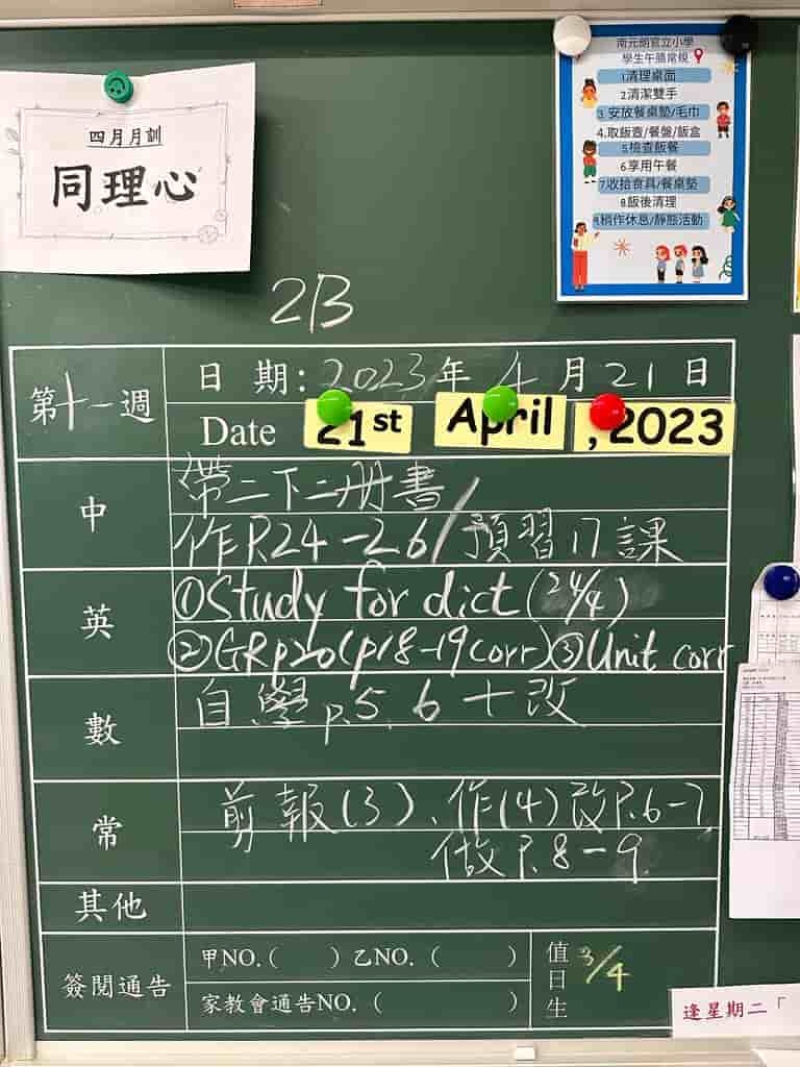 四月月訓
同理心
南元朗官立小學
學生午膳常規
1清理桌面
2清潔雙手
3.安放餐桌墊/毛巾
4.取飯壼/餐盤/飯盒
5.檢查飯餐
6.享用午餐
7.收拾食具/餐桌墊
8.飯後清理
9.稍作休息/靜態活動
2B
第十一週
日 期: 2023年 4 月 21 日
Date 21st April , 2023
中
帶二下二册書/
作P.24-26/預習17課
英
①Study for dict (24/4)
②GRp20(p18-19corr)③Unit corr
數
自學p.5, 6 十改
常
剪報(3)、作(4)改P.6-7
做P.8-9
其他
簽閱通告
甲NO.( )乙NO.( )
家教會通告NO.( )
值日生
3/4
逢星期二「